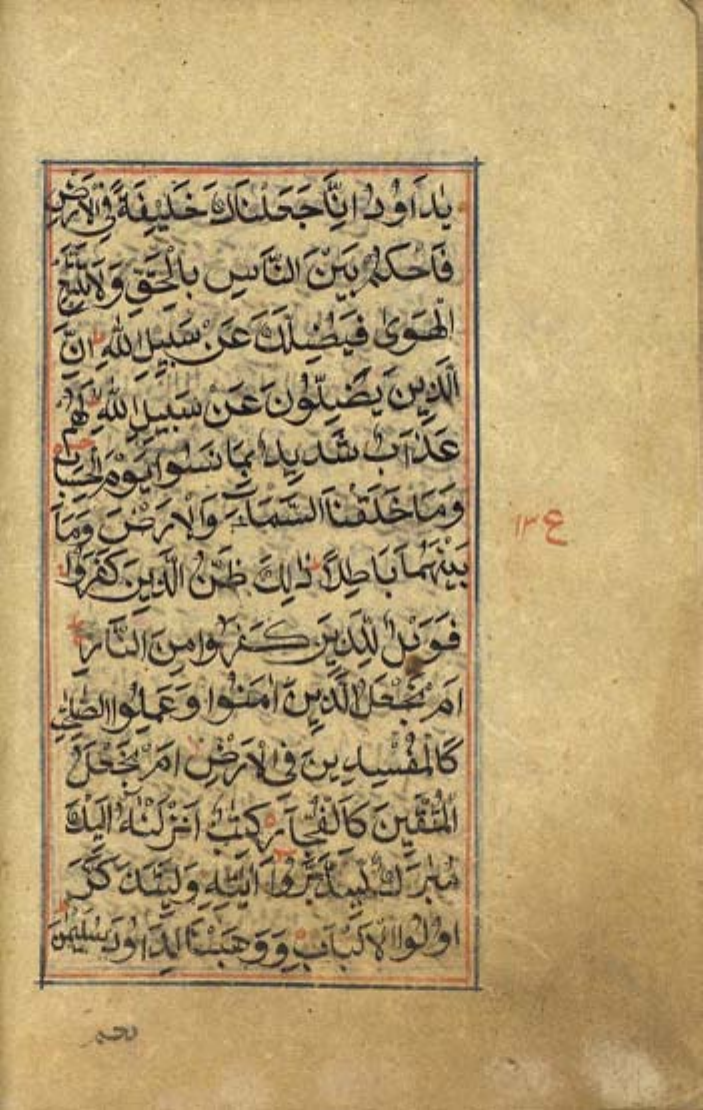 يٰدَاوٗدُ اِنَّا جَعَلْنَاكَ خَلِيْفَةً فِي الْاَرْضِ
فَاحْكُمْ بَيْنَ النَّاسِ بِالْحَقِّ وَلَا تَتَّبِعِ
الْهَوٰى فَيُضِلَّكَ عَنْ سَبِيْلِ اللّٰهِ اِنَّ
الَّذِيْنَ يَضِلُّوْنَ عَنْ سَبِيْلِ اللّٰهِ لَهُمْ
عَذَابٌ شَدِيْدٌ بِمَا نَسُوْا يَوْمَ الْحِسَابِ
وَمَا خَلَقْنَا السَّمَآءَ وَالْاَرْضَ وَمَا
بَيْنَهُمَا بَاطِلًا ذٰلِكَ ظَنُّ الَّذِيْنَ كَفَرُوْا
فَوَيْلٌ لِّلَّذِيْنَ كَفَرُوْا مِنَ النَّارِ
اَمْ نَجْعَلُ الَّذِيْنَ اٰمَنُوْا وَعَمِلُوا الصّٰلِحٰتِ
كَالْمُفْسِدِيْنَ فِي الْاَرْضِ اَمْ نَجْعَلُ
الْمُتَّقِيْنَ كَالْفُجَّارِ كِتٰبٌ اَنْزَلْنٰهُ اِلَيْكَ
مُبٰرَكٌ لِّيَدَّبَّرُوْا اٰيٰتِهٖ وَلِيَتَذَكَّرَ
اُولُوا الْاَلْبَابِ وَوَهَبْنَا لِدَاوٗدَ سُلَيْمٰنَ
ع ١٣
نعم